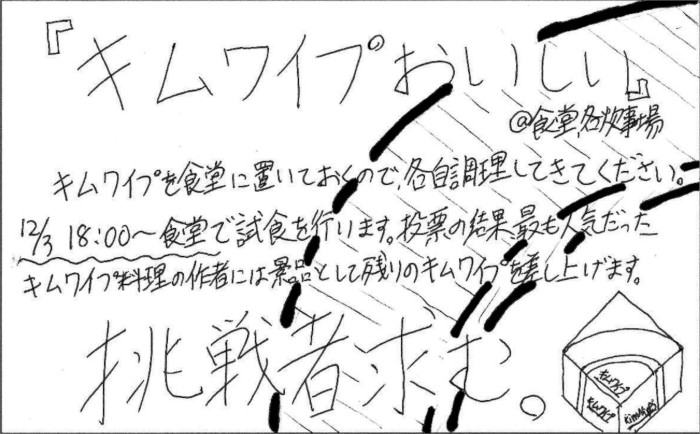 『キムワイプおいしい』
@食堂,各炊事場
キムワイプを食堂に置いておくので,各自調理してきてください。
12/3 18:00〜食堂で試食を行います。投票の結果,最も人気だった
キムワイプ料理の作者には景品として残りのキムワイプを差し上げます。
挑戦者求む。
キムワイプ
キムワイプ
kimwipes